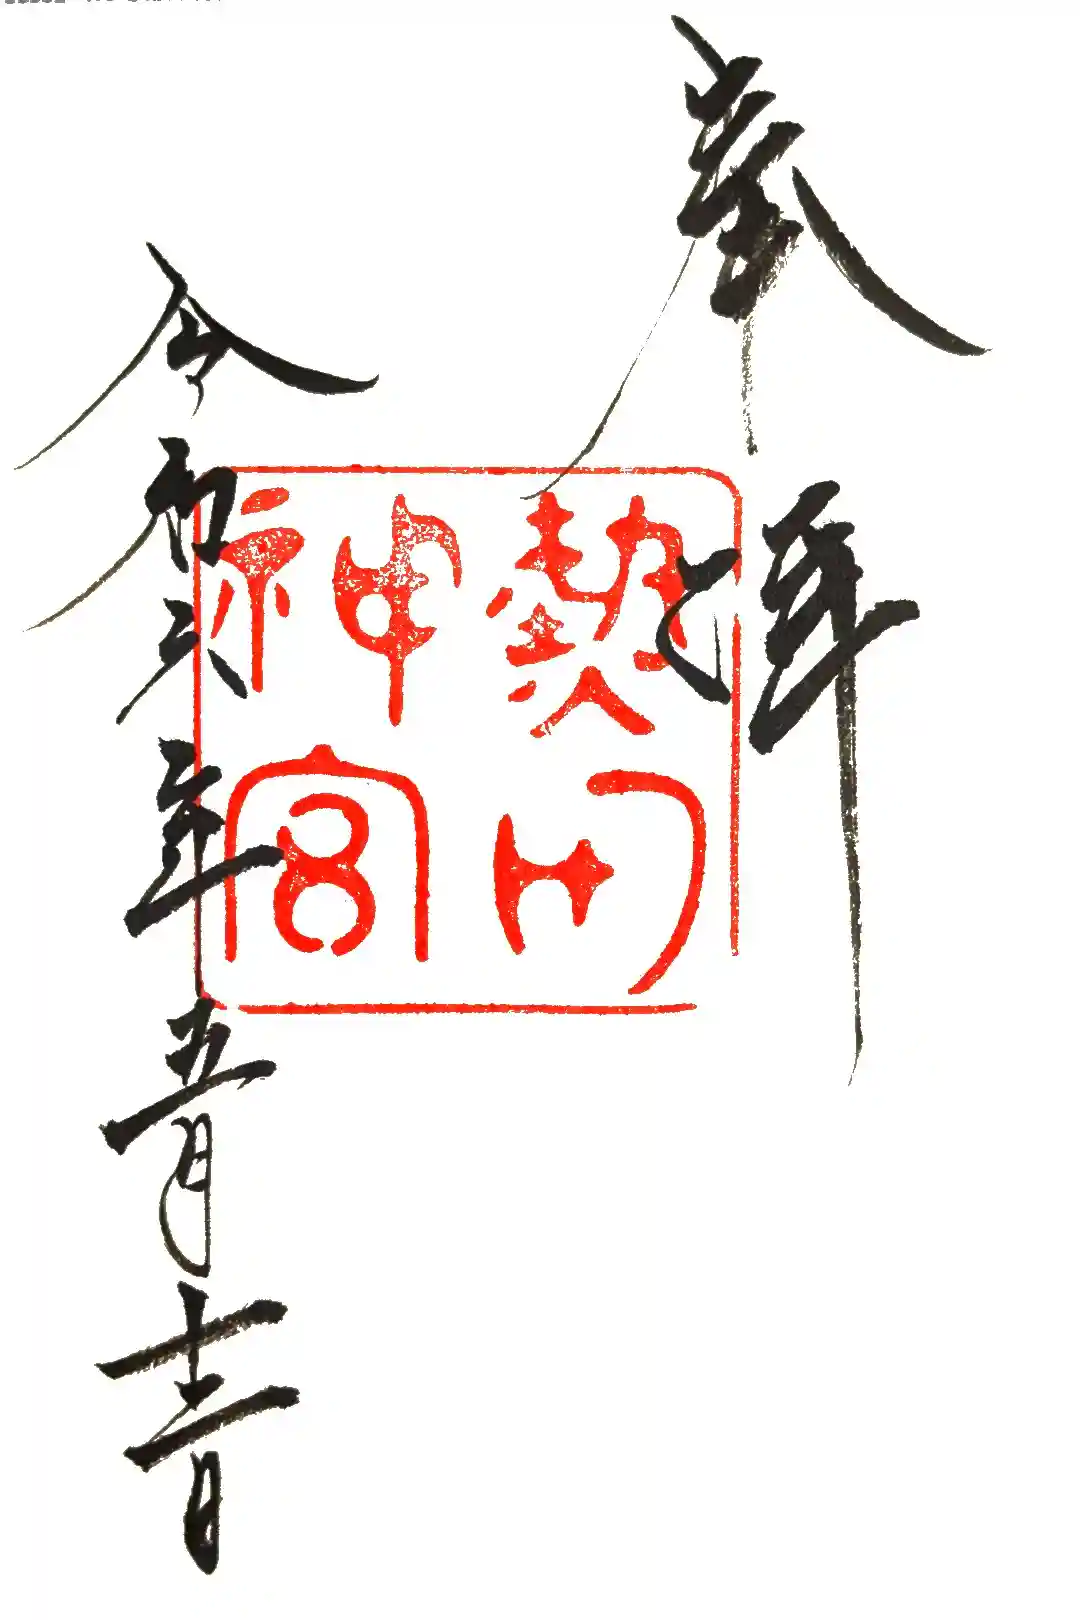 奉拝
熱田神宮
令和六年五月十二日